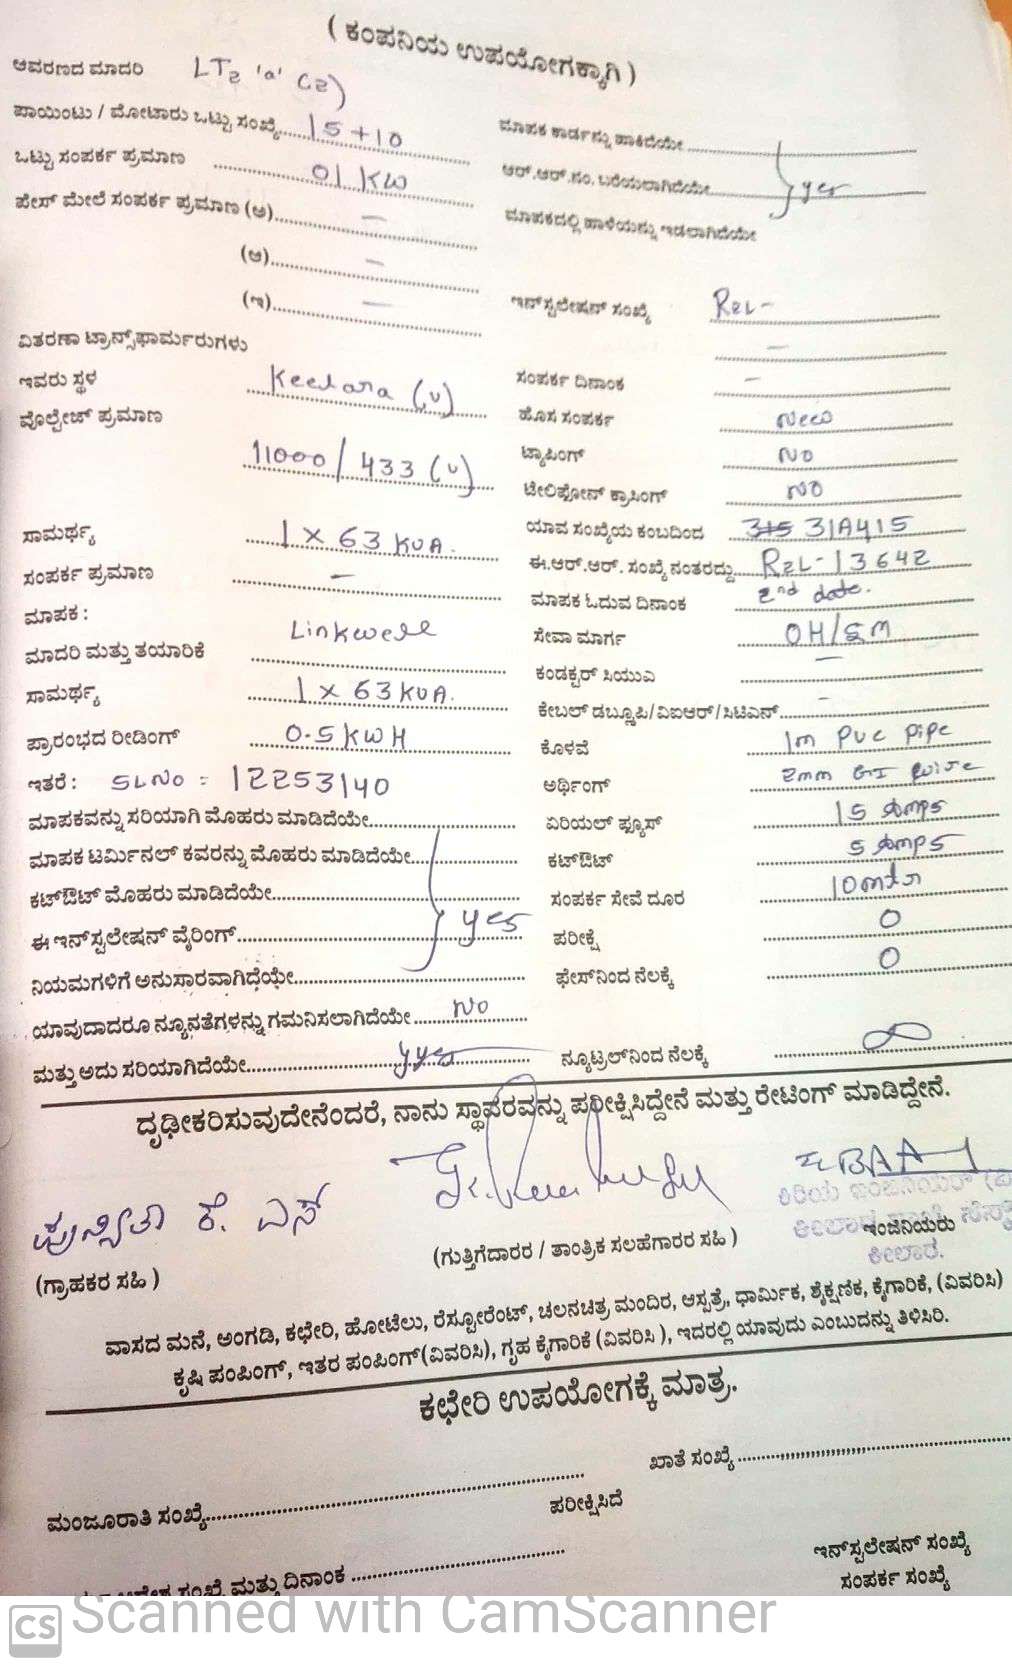 ( ಕಂಪನಿಯ ಉಪಯೋಗಕ್ಕಾಗಿ )
ಆವರಣದ ಮಾದರಿ LT2 'a' (2)
ಪಾಯಿಂಟು / ಮೋಟಾರು ಒಟ್ಟು ಸಂಖ್ಯೆ...... 15+10
ಒಟ್ಟು ಸಂಪರ್ಕ ಪ್ರಮಾಣ 01 KW
ಪೇಸ್ ಮೇಲೆ ಸಂಪರ್ಕ ಪ್ರಮಾಣ (ಅ) —
(ಆ) —
(ಇ) —
ವಿತರಣಾ ಟ್ರಾನ್ಸ್‌ಫಾರ್ಮರುಗಳು
ಇವರು ಸ್ಥಳ Keelara (v)
ವೊಲ್ಟೇಜ್ ಪ್ರಮಾಣ
11000/433 (v)
ಸಾಮರ್ಥ್ಯ 1 x 63 KVA.
ಸಂಪರ್ಕ ಪ್ರಮಾಣ —
ಮಾಪಕ :
ಮಾದರಿ ಮತ್ತು ತಯಾರಿಕೆ Linkwell
ಸಾಮರ್ಥ್ಯ 1 x 63 KVA.
ಪ್ರಾರಂಭದ ರೀಡಿಂಗ್ 0.5 KWH
ಇತರೆ : SL NO = 12253140
ಮಾಪಕವನ್ನು ಸರಿಯಾಗಿ ಮೊಹರು ಮಾಡಿದೆಯೇ
ಮಾಪಕ ಟರ್ಮಿನಲ್ ಕವರನ್ನು ಮೊಹರು ಮಾಡಿದೆಯೇ
ಕಟ್‌ಔಟ್ ಮೊಹರು ಮಾಡಿದೆಯೇ
ಈ ಇನ್‌ಸ್ಟಲೇಷನ್ ವೈರಿಂಗ್ yes
ನಿಯಮಗಳಿಗೆ ಅನುಸಾರವಾಗಿದೆಯೇ
ಯಾವುದಾದರೂ ನ್ಯೂನತೆಗಳನ್ನು ಗಮನಿಸಲಾಗಿದೆಯೇ No
ಮತ್ತು ಅದು ಸರಿಯಾಗಿದೆಯೇ yes
ಮಾಪಕ ಕಾರ್ಡನ್ನು ಹಾಕಿದೆಯೇ
ಆರ್.ಆರ್.ನಂ. ಬರೆಯಲಾಗಿದೆಯೇ yes
ಮಾಪಕದಲ್ಲಿ ಹಾಳೆಯನ್ನು ಇಡಲಾಗಿದೆಯೇ
ಇನ್‌ಸ್ಟಲೇಷನ್ ಸಂಖ್ಯೆ R2L-
—
ಸಂಪರ್ಕ ದಿನಾಂಕ —
ಹೊಸ ಸಂಪರ್ಕ New
ಟ್ಯಾಪಿಂಗ್ NO
ಟೇಲಿಫೋನ್ ಕ್ರಾಸಿಂಗ್ NO
ಯಾವ ಸಂಖ್ಯೆಯ ಕಂಬದಿಂದ 31A415
ಈ.ಆರ್.ಆರ್. ಸಂಖ್ಯೆ ನಂತರದ್ದು R2L-13642
ಮಾಪಕ ಓದುವ ದಿನಾಂಕ 2nd date.
ಸೇವಾ ಮಾರ್ಗ OH/SM
ಕಂಡಕ್ಟರ್ ಸಿಯುಎ —
ಕೇಬಲ್ ಡಬ್ಲೂಪಿ/ವಿಐಆರ್/ಸಿಟಿಎನ್ —
ಕೊಳವೆ 1m PVC PiPe
ಅರ್ಥಿಂಗ್ 2mm GI wire
ಏರಿಯಲ್ ಫ್ಯೂಸ್ 15 Amps
ಕಟ್‌ಔಟ್ 5 Amps
ಸಂಪರ್ಕ ಸೇವೆ ದೂರ 10mtr
ಪರೀಕ್ಷೆ 0
ಫೇಸ್‌ನಿಂದ ನೆಲಕ್ಕೆ 0
ನ್ಯೂಟ್ರಲ್‌ನಿಂದ ನೆಲಕ್ಕೆ ∞
ದೃಢೀಕರಿಸುವುದೇನೆಂದರೆ, ನಾನು ಸ್ಥಾಪರವನ್ನು ಪರೀಕ್ಷಿಸಿದ್ದೇನೆ ಮತ್ತು ರೇಟಿಂಗ್ ಮಾಡಿದ್ದೇನೆ.
ಕೆ. ಎಸ್
(ಗ್ರಾಹಕರ ಸಹಿ )
(ಗುತ್ತಿಗೆದಾರರ / ತಾಂತ್ರಿಕ ಸಲಹೆಗಾರರ ಸಹಿ )
ಕಿರಿಯ ಇಂಜಿನಿಯರ್
ಇಂಜಿನಿಯರು
ಕೀಲಾರ.
ವಾಸದ ಮನೆ, ಅಂಗಡಿ, ಕಛೇರಿ, ಹೋಟೆಲು, ರೆಸ್ಟೋರೆಂಟ್, ಚಲನಚಿತ್ರ ಮಂದಿರ, ಆಸ್ಪತ್ರೆ, ಧಾರ್ಮಿಕ, ಶೈಕ್ಷಣಿಕ, ಕೈಗಾರಿಕೆ, (ವಿವರಿಸಿ)
ಕೃಷಿ ಪಂಪಿಂಗ್, ಇತರ ಪಂಪಿಂಗ್(ವಿವರಿಸಿ), ಗೃಹ ಕೈಗಾರಿಕೆ (ವಿವರಿಸಿ ), ಇದರಲ್ಲಿ ಯಾವುದು ಎಂಬುದನ್ನು ತಿಳಿಸಿರಿ.
ಕಛೇರಿ ಉಪಯೋಗಕ್ಕೆ ಮಾತ್ರ.
ಖಾತೆ ಸಂಖ್ಯೆ
ಮಂಜೂರಾತಿ ಸಂಖ್ಯೆ
ಪರೀಕ್ಷಿಸಿದೆ
ಇನ್‌ಸ್ಟಲೇಷನ್ ಸಂಖ್ಯೆ
ಸಂಖ್ಯೆ ಮತ್ತು ದಿನಾಂಕ
ಸಂಪರ್ಕ ಸಂಖ್ಯೆ
CS Scanned with CamScanner